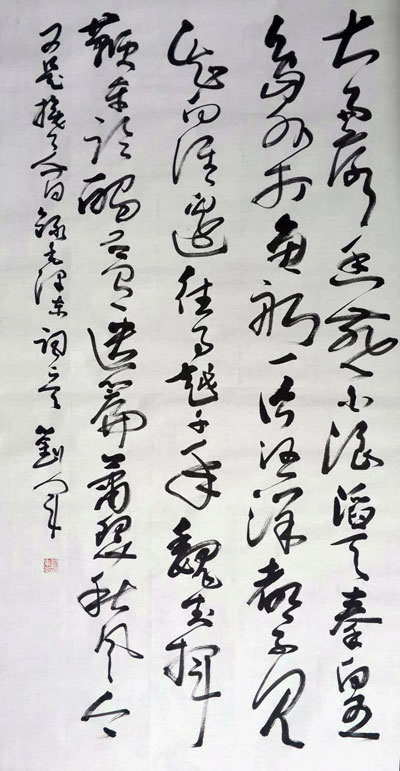 大雨落幽燕白浪滔天秦皇
岛外打鱼船一片汪洋都不见
知向谁边往事越千年魏武挥
鞭东临碣石有遗篇萧瑟秋风今
又是换了人间 录毛泽东词 刘